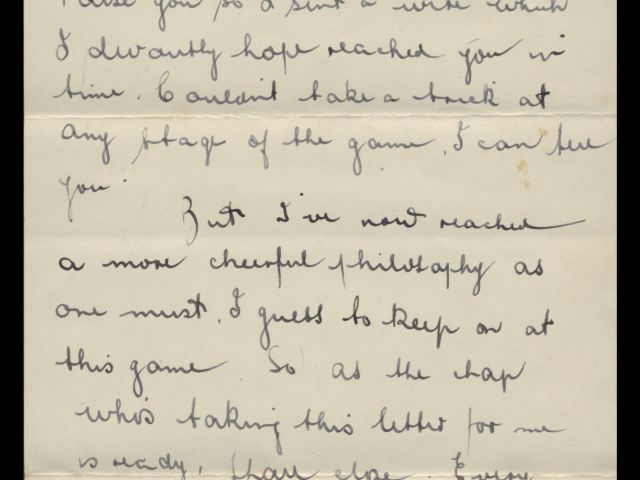 you so I sent a wire which
I devoutly hope reached you in
time. Couldn't take a trick at
any stage of the game, I can tell
you.
But I've now reached
a more cheerful philosophy as
one must, I guess to keep on at
this game So as the chap
who's taking this letter for me
is ready, shall close. Every